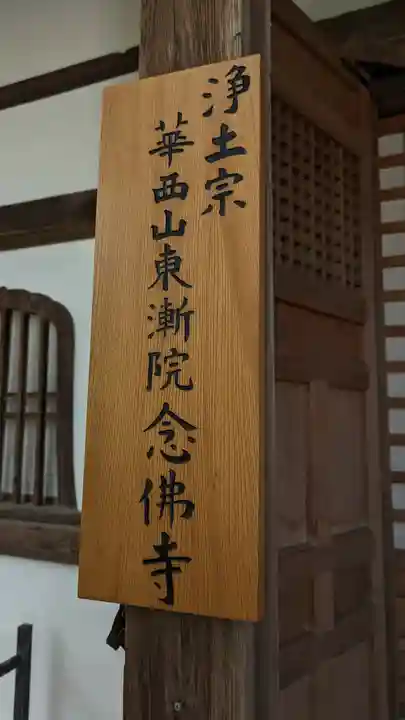 浄土宗
華西山東漸院念佛寺